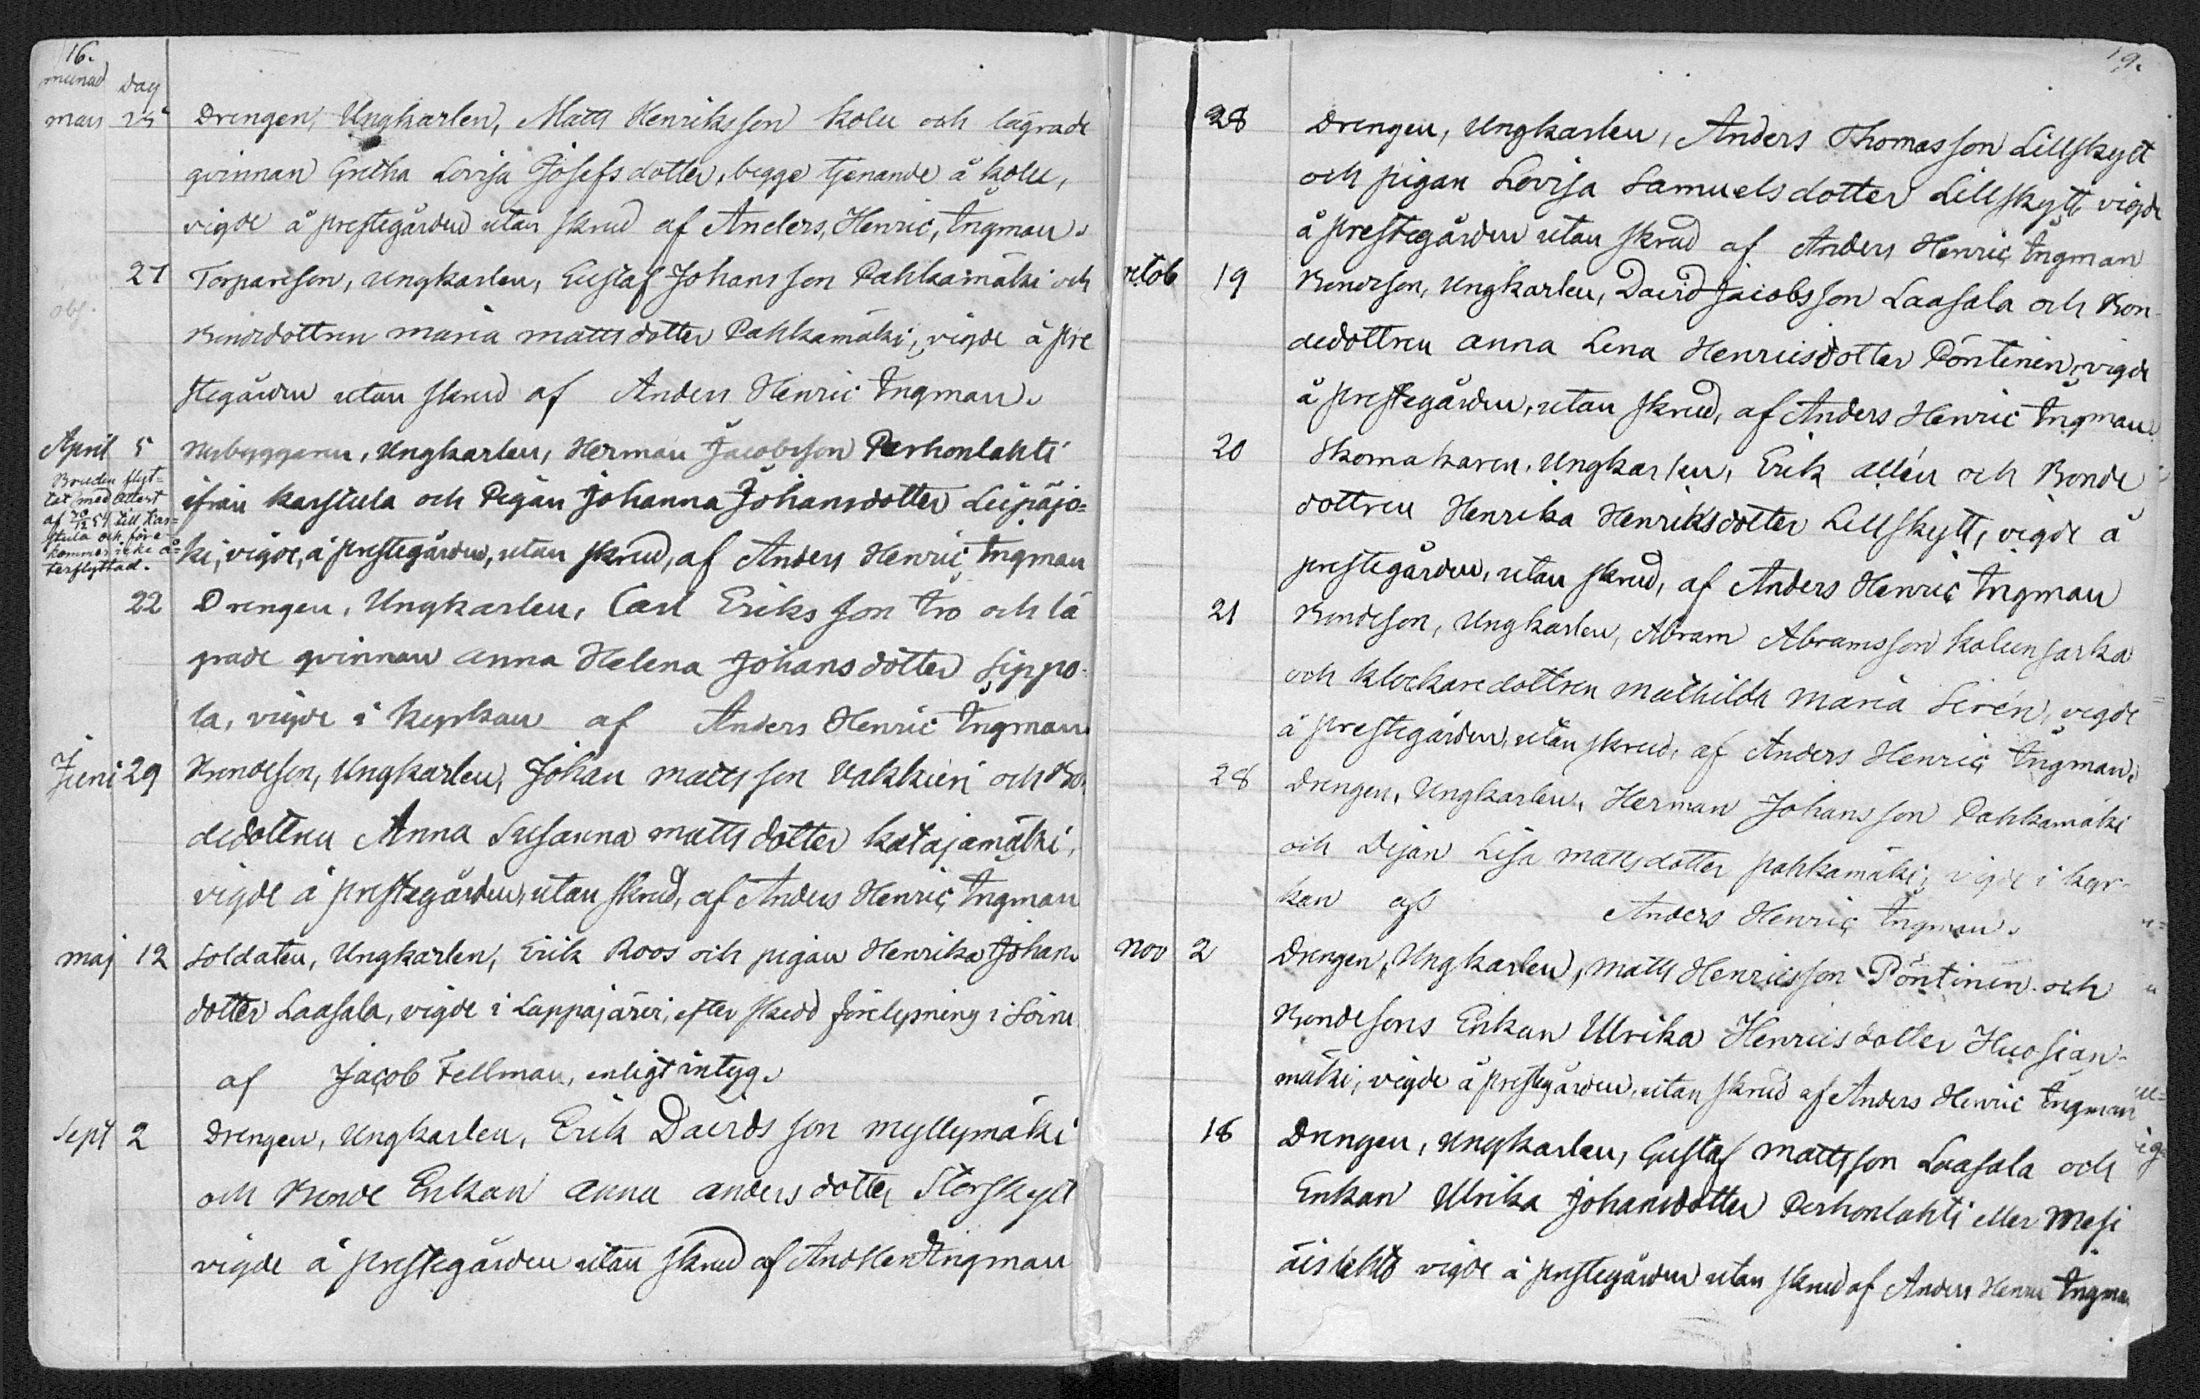 16.
månad dag
mars 25 Drengen, Ungkarlen, Matts Henriksson Kolu och lägrade
qvinnan Gretha Lovisa Josefsdotter, begge tjenande å Kolu,
vigde å prestegården utan skrud af Anders, Henric, Ingman.
27 Torpareson, Ungkarlen, Gustaf Johansson Pahkamäki och
obs.
Bondedottren Maria Mattsdotter Pahkamäki, vigde å pre
stegården utan skrud af Anders Henric Ingman.
April 5 Nybyggaren, Ungkarlen, Herman Jacobsson Perhonlahti
ifrån Karstula och Pigan Johanna Johansdotter Leipäjo=
ki, vigde, å prestegården, utan skrud, af Anders Henric Ingman
Bruden flyt=
tat med Attest
af 20/12 54 till Kar=
stula och före
kommer icke å=
terflyttad.
22 Drengen, Ungkarlen, Carl Eriksson Tro och lä
grade qvinnan Anna Helena Johansdotter Sippo-
la, vigde i kyrkan af Anders Henric Ingman.
Juni 29 Bondeson, Ungkarlen, Johan Mattsson Vakkuri och Bon
dedottren Anna Susanna Mattsdotter Katajamäki,
vigde å prestegården, utan skrud, af Anders Henric Ingman
maj 12 Soldaten, Ungkarlen, Erik Roos och pigan Henrika Johans
dotter Laasala, vigde i Lappajärvi, efter skedd förelysning i Soini
af Jacob Fellman, enligt intyg.
Sept 2 Drengen, Ungkarlen, Erik Davidsson Myllymäki
och Bonde Enkan Anna Andersdotter Storskytt
vigde å prestegården utan skrud af And Hen Ingman
19.
28 Drengen, Ungkarlen, Anders Thomasson Lillskytt
och pigan Lovisa Samuelsdotter Lillskytt, vigde
å prestegården utan skrud af Anders Henric Ingman
octob 19 Bondeson, Ungkarlen, David Jacobsson Laasala och Bon-
dedottren Anna Lena Henricsdotter Pöntinen, vigde
å prestegården, utan skrud, af Anders Henric Ingman.
20 Skomakaren, Ungkarlen, Erik Allén och Bonde
dottren Henrika Henriksdotter Lillskytt, vigde å
prestegården, utan skrud, af Anders Henric Ingman
21 Bondeson, Ungkarlen, Abram Abramsson Koliinsarka
och Klockaredottren Mathilda Maria Sirén, vigde
å prestegården, utan skrud, af Anders Henric Ingman.
28 Drengen, Ungkarlen, Herman Johansson Pahkamäki
och Dejan Lisa Mattsdotter Pahkamäki, vigde i kyr-
kan af Anders Henric Ingman.
nov 2 Drengen, Ungkarlen, Matts Henricsson Pöntinen och
Bondesons Enkan Ulrika Henricsdotter Huosian-
mäki, vigde å prestegården, utan skrud af Anders Henric Ingman
18 Drengen, Ungkarlen, Gustaf Mattsson Laasala och
Enkan Ulrika Johansdotter Perhonlahti eller Mesi
äislehto vigde å prestegården utan skrud af Anders Henric Ingman